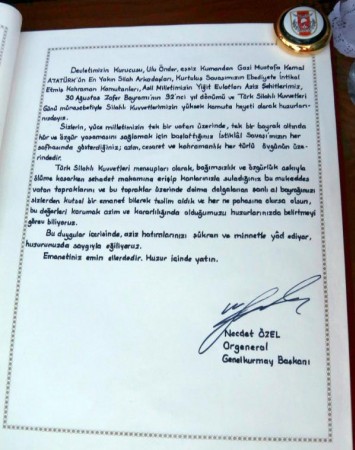 Devletimizin Kurucusu, Ulu Önder, eşsiz Kumandan Gazi Mustafa Kemal
ATATÜRK'ün En Yakın Silah Arkadaşları, Kurtuluş Savaşımızın Ebediyete İntikal
Etmiş Kahraman Komutanları, Asil Milletimizin Yiğit Evlatları Aziz Şehitlerimiz,
30 Ağustos Zafer Bayramı'nın 92'nci yıl dönümü ve Türk Silahlı Kuvvetleri
Günü münasebetiyle Silahlı Kuvvetlerimizin yüksek komuta heyeti olarak huzurları-
nızdayız.
Sizlerin, yüce milletimizin tek bir vatan üzerinde, tek bir bayrak altında
hür ve özgür yaşamasını sağlamak için başlattığınız İstiklâl Savaşı'mızın her
safhasında gösterdiğiniz; azim, cesaret ve kahramanlık her türlü övgünün üze-
rindedir.
Türk Silahlı Kuvvetleri mensupları olarak, bağımsızlık ve özgürlük aşkıyla
ölüme koşarken şehadet makamına erişip kanlarınızla suladığınız bu mukaddes
vatan topraklarını ve bu topraklar üzerinde daima dalgalanan şanlı al bayrağımızı
sizlerden kutsal bir emanet bilerek teslim aldık ve her ne pahasına olursa olsun,
bu değerleri korumak azim ve kararlılığında olduğumuzu huzurlarınızda belirtmeyi
görev biliyoruz.
Bu duygular içerisinde, aziz hatıralarınızı şükran ve minnetle yâd ediyor,
huzurunuzda saygıyla eğiliyoruz.
Emanetiniz emin ellerdedir. Huzur içinde yatın.
Necdet ÖZEL
Orgeneral
Genelkurmay Başkanı